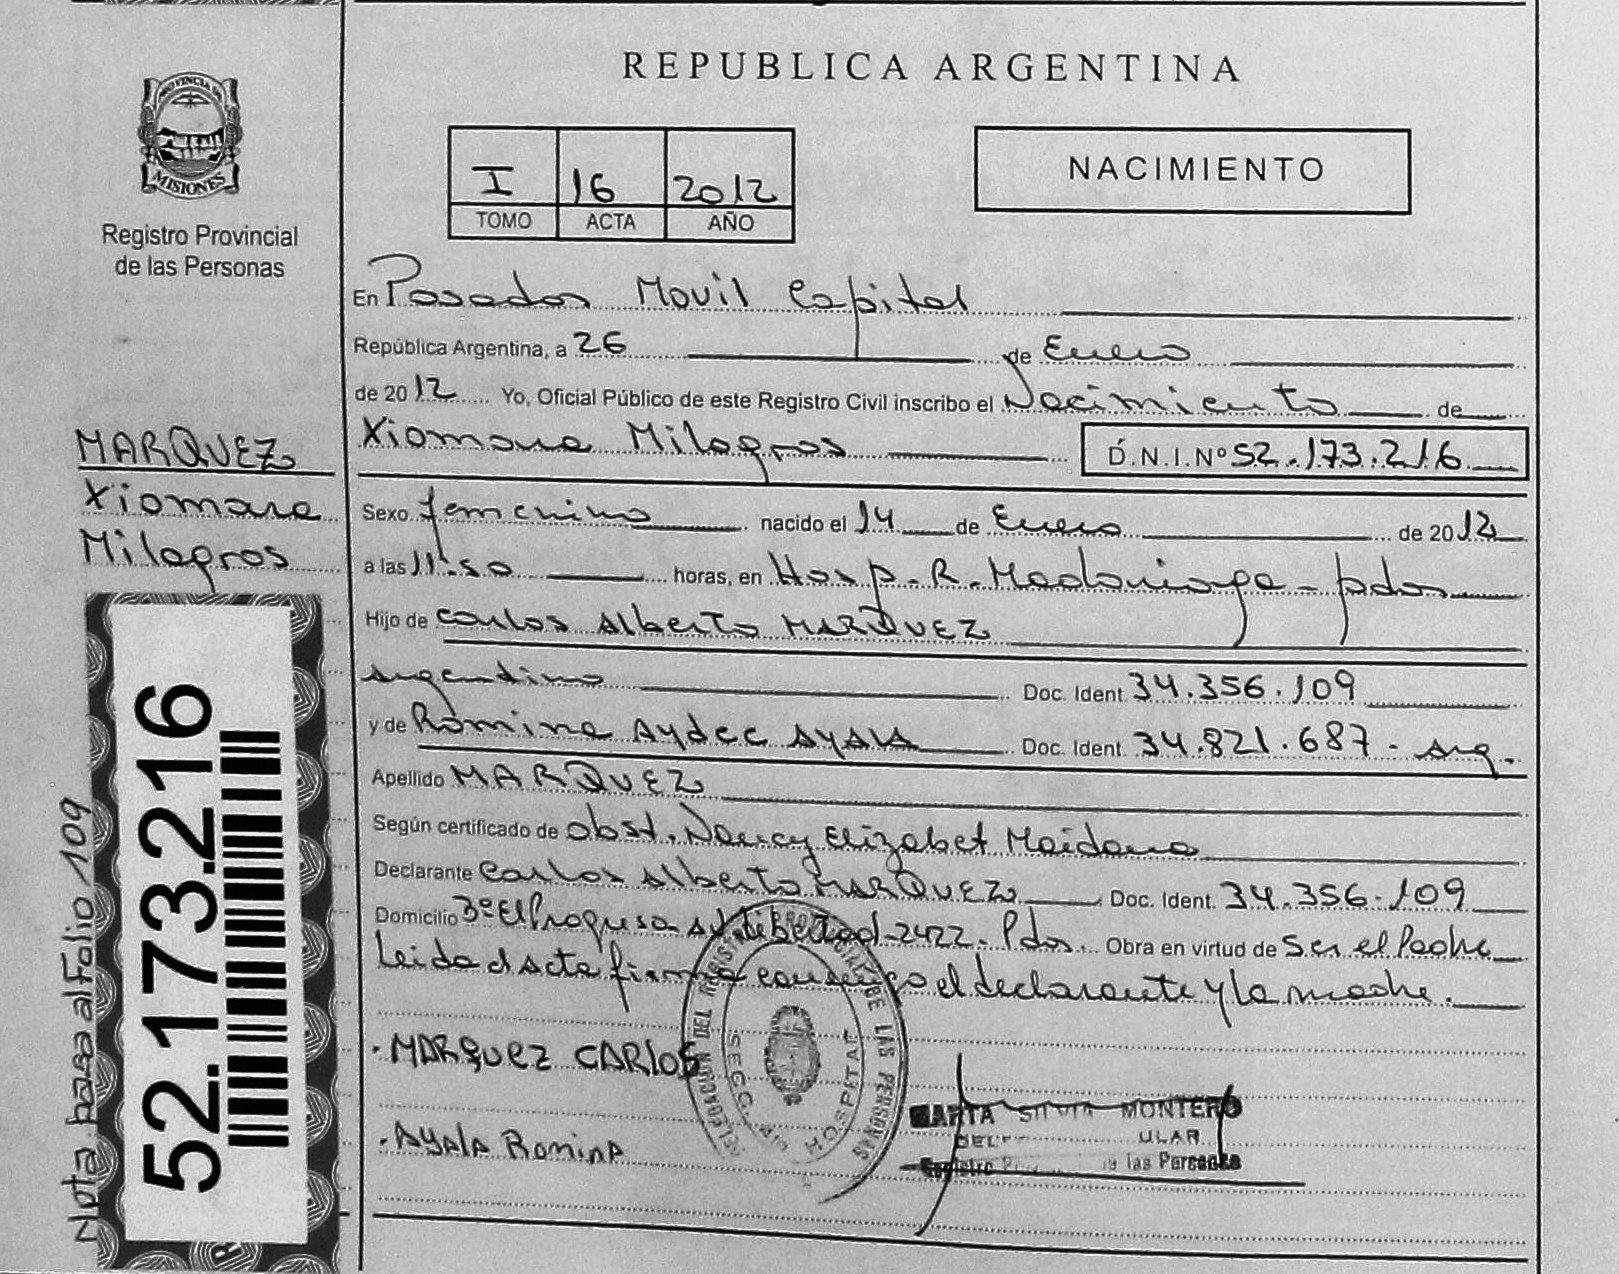 REPUBLICA ARGENTINA
PROVINCIA DE
MISIONES
Registro Provincial
de las Personas
I 16 2012
TOMO ACTA AÑO
NACIMIENTO
En Posadas Movil Capital
República Argentina, a 26 de Enero
de 2012 Yo, Oficial Público de este Registro Civil inscribo el Nacimiento de
Xiomara Milagros D.N.I.Nº 52.173.216
MARQUEZ
Xiomara
Milagros
Sexo femenino nacido el 14 de Enero de 2012
a las 11:50 horas, en Hosp. R. Madariaga - pdas
Hijo de Carlos Alberto MARQUEZ
argentino Doc. Ident. 34.356.109
y de Romina Aydee AYALA Doc. Ident. 34.821.687 - arg.
Apellido MARQUEZ
Según certificado de obst. Nancy Elizabet Maidana
Declarante Carlos Alberto MARQUEZ Doc. Ident. 34.356.109
Domicilio 3º El Progreso s/ Libertad 2422 - Pdas. Obra en virtud de Ser el Padre
Leida el Acta firma conmigo el declarante y la madre.
MARQUEZ CARLOS
AYALA Romina
52.173.216
Nota pasa al Folio 109
DEL REGISTRO PROVINCIAL DE LAS PERSONAS
HOSPITAL
MARTA SILVIA MONTERO
Registro las Personas